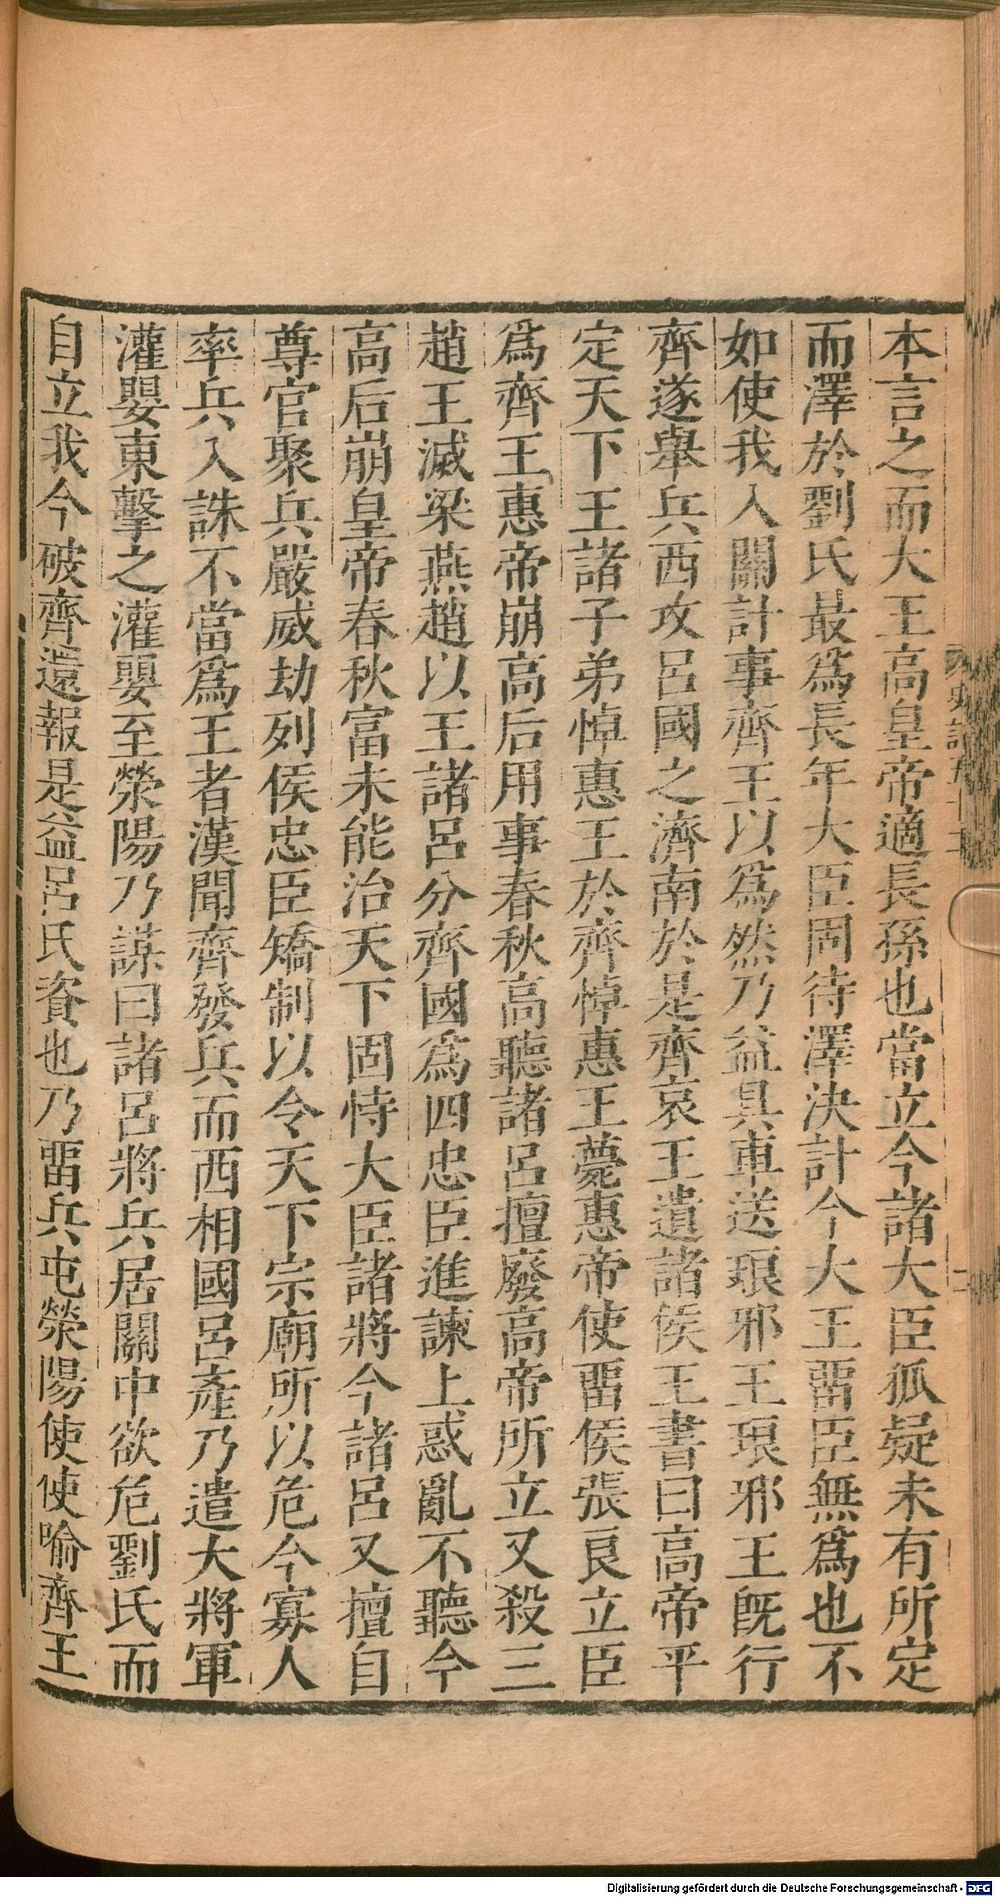 本言之而大王高皇帝適長孫也當立今諸大臣狐疑未有所定
而澤於劉氏最爲長年大臣固待澤決計今大王畱臣無爲也不
如使我入關計事齊王以爲然乃益具車送琅邪王琅邪王旣行
齊遂舉兵西攻呂國之濟南於是齊哀王遺諸侯王書曰高帝平
定天下王諸子弟悼惠王於齊悼惠王薨惠帝使畱侯張良立臣
爲齊王惠帝崩高后用事春秋高聽諸呂擅廢高帝所立又殺三
趙王滅梁燕趙以王諸呂分齊國爲四忠臣進諫上惑亂不聽今
高后崩皇帝春秋富未能治天下固恃大臣諸將今諸呂又擅自
尊官聚兵嚴威劫列侯忠臣矯制以令天下宗廟所以危今寡人
率兵入誅不當爲王者漢聞齊發兵而西相國呂產乃遣大將軍
灌嬰東擊之灌嬰至滎陽乃謀曰諸呂將兵居關中欲危劉氏而
自立我今破齊還報是益呂氏資也乃畱兵屯滎陽使使喻齊王
Digitalisierung gefördert durch die Deutsche Forschungsgemeinschaft - DFG